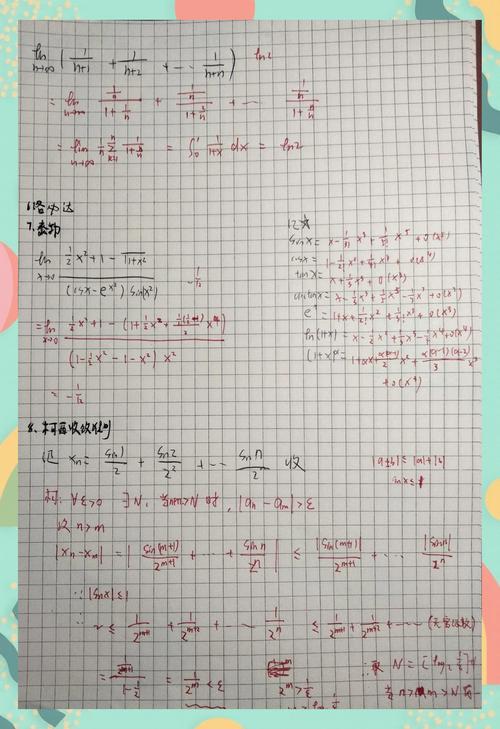 lim n→∞ ( 1/(n+1) + 1/(n+2) + ... 1/(n+n) ) ln2
= lim n→∞ (1/n)/(1+1/n) + (1/n)/(1+2/n) + ... (1/n)/(1+n/n)
= lim n→∞ 1/n Σ k=1 n 1/(1+k/n) = ∫₀¹ 1/(1+x) dx = ln2
6.洛必达
7.泰勒
lim x→0 (½x²+1-√(1+x²)) / ((cosx-e^(x²)) sin(x²)) -1/12
= lim x→0 (½x²+1-(1+½x²+ x⁴)) / ((1-½x²-1-x²) x²)
= -1/12
sinx = x-1/3! x³+1/5! x⁵+o(x⁵)
cosx = 1-1/2! x²+1/4! x⁴+o(x⁴)
tanx = x+1/3 x³+o(x³)
arctanx = x-1/3 x³+1/5 x⁵-1/7 x⁷+o(x⁷)
e^x = 1+x+1/2! x²+1/3! x³+o(x³)
ln(1+x) = x-½x²+⅓x³-¼x⁴+o(x⁴)
(1+x)^α = 1+αx+α(α-1)/2 x²+α(α-1)(α-2)/3 x³
8.柯西收敛
xn = sin1/2 + sin2/2² + ... sinn/2ⁿ 收
|a+b| ≤ |a|+|b|
sinx ≤ 1
∀ε>0 ∃N, 当n,m>N 时, |an-am|<ε
设 n>m
|xn-xm| = | sin(m+1)/2^(m+1) + ... + sinn/2ⁿ | ≤ |sin(m+1)|/2^(m+1) + ... |sinn|/2ⁿ
∵ |sinx| ≤ 1
∴ ≤ 1/2^(m+1) + 1/2^(m+2) + ... 1/2ⁿ ≤ 1/2^(m+1) + 1/2^(m+2) + ...... (无穷级数)
= /(1-½) = 1/2^m < ε 2^m > 1/ε
∴ 取 N = [log₂ 1/ε]+1
当 n>m>N